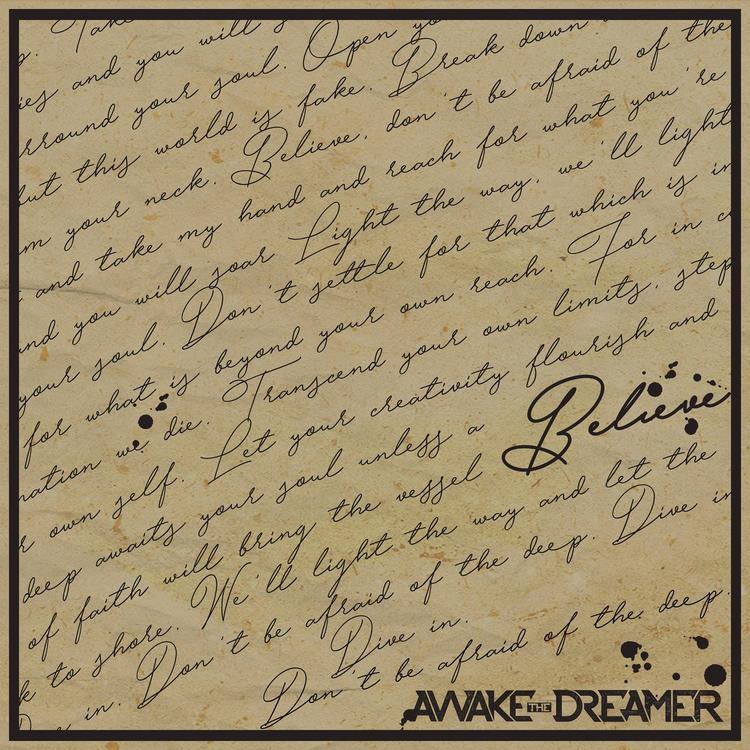 p. Take
ies and you will s
rround your soul. Open yo
but this world is fake. Break down
m your neck. Believe, don't be afraid of the
and take my hand and reach for what you're
nd you will soar Light the way, we'll light
your soul. Don't settle for that which is in
for what is beyond your own reach. For in c
nation we die. Transcend your own limits, step
r own self. Let your creativity flourish and
deep awaits your soul unless a Believe
of faith will bring the vessel
k to shore. We'll light the way and let the
e in. Don't be afraid of the deep. Dive in
Dive in.
Don't be afraid of the deep.
AWAKE THE DREAMER